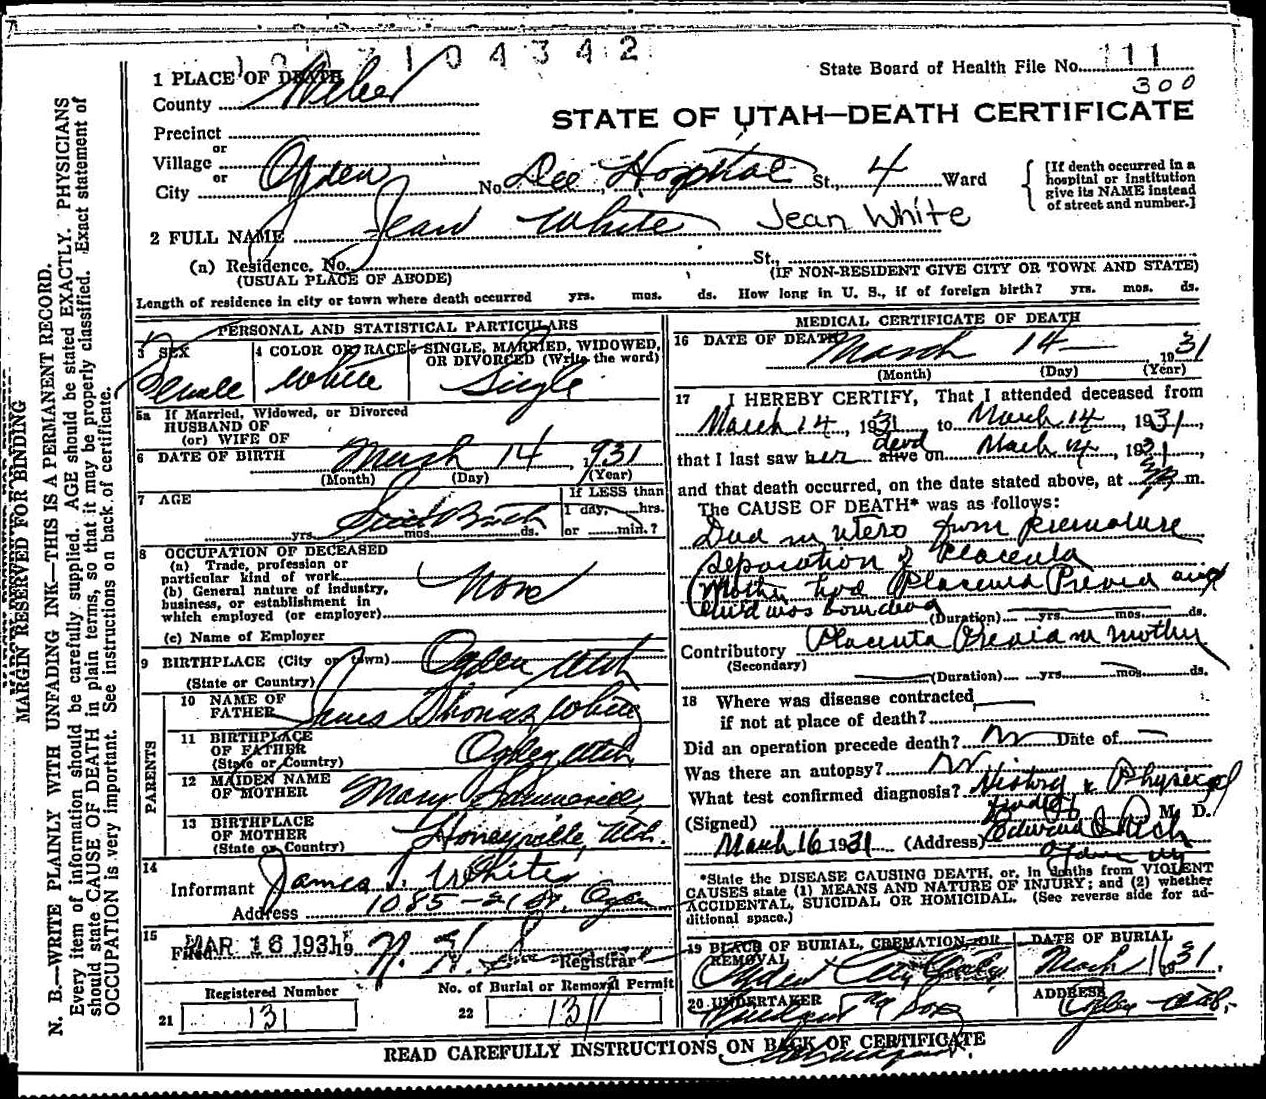 104342
State Board of Health File No. 111
300
1 PLACE OF DEATH
County Weber
STATE OF UTAH—DEATH CERTIFICATE
Precinct
or
Village
or
City Ogden No. Dee Hospital St., 4 Ward
[If death occurred in a hospital or institution give its NAME instead of street and number.]
2 FULL NAME Jean White Jean White
(a) Residence, No. St.,
(USUAL PLACE OF ABODE) (IF NON-RESIDENT GIVE CITY OR TOWN AND STATE)
Length of residence in city or town where death occurred yrs. mos. ds. How long in U. S., if of foreign birth? yrs. mos. ds.
PERSONAL AND STATISTICAL PARTICULARS
3 SEX 4 COLOR OR RACE 5 SINGLE, MARRIED, WIDOWED,
OR DIVORCED (Write the word)
Female White Single
5a If Married, Widowed, or Divorced
HUSBAND OF
(or) WIFE OF
6 DATE OF BIRTH March 14 1931
(Month) (Day) (Year)
7 AGE If LESS than
1 day, hrs.
Still Birth
yrs. mos. ds. or min.?
8 OCCUPATION OF DECEASED
(a) Trade, profession or
particular kind of work
(b) General nature of industry,
business, or establishment in
which employed (or employer)
None
(c) Name of Employer
9 BIRTHPLACE (City or town) Ogden Utah
(State or Country)
PARENTS
10 NAME OF
FATHER James Thomas White
11 BIRTHPLACE
OF FATHER Ogden Utah
(State or Country)
12 MAIDEN NAME
OF MOTHER Mary
13 BIRTHPLACE
OF MOTHER Honeyville, Utah.
(State or Country)
14
Informant James T. White
Address 1085 - 21 St. Ogden
15
Filed MAR 16 1931 19
Registrar
Registered Number No. of Burial or Removal Permit
21 131 22 131
MEDICAL CERTIFICATE OF DEATH
16 DATE OF DEATH March 14 1931
(Month) (Day) (Year)
17 I HEREBY CERTIFY, That I attended deceased from
March 14, 1931 to March 14, 1931,
that I last saw her alive on dead March 14, 1931,
and that death occurred, on the date stated above, at m.
The CAUSE OF DEATH* was as follows:
Died in utero from premature
separation of Placenta
Mother had Placenta Previa and
child was born dead
(Duration) yrs. mos. ds.
Contributory Placenta Previa in mother
(Secondary)
(Duration) yrs. mos. ds.
18 Where was disease contracted
if not at place of death?
Did an operation precede death? No Date of
Was there an autopsy? No
What test confirmed diagnosis? History & Physical
findings
(Signed) Edward I Rich M. D.
March 16 1931 (Address) Ogden Ut
*State the DISEASE CAUSING DEATH, or, in deaths from VIOLENT
CAUSES state (1) MEANS AND NATURE OF INJURY; and (2) whether
ACCIDENTAL, SUICIDAL OR HOMICIDAL. (See reverse side for ad-
ditional space.)
19 PLACE OF BURIAL, CREMATION, OR REMOVAL DATE OF BURIAL
Ogden City March 1931.
20 UNDERTAKER ADDRESS
& Sons Ogden Utah.
READ CAREFULLY INSTRUCTIONS ON BACK OF CERTIFICATE
MARGIN RESERVED FOR BINDING
N. B.—WRITE PLAINLY WITH UNFADING INK—THIS IS A PERMANENT RECORD.
Every item of information should be carefully supplied. AGE should be stated EXACTLY. PHYSICIANS
should state CAUSE OF DEATH in plain terms, so that it may be properly classified. Exact statement of
OCCUPATION is very important. See instructions on back of certificate.